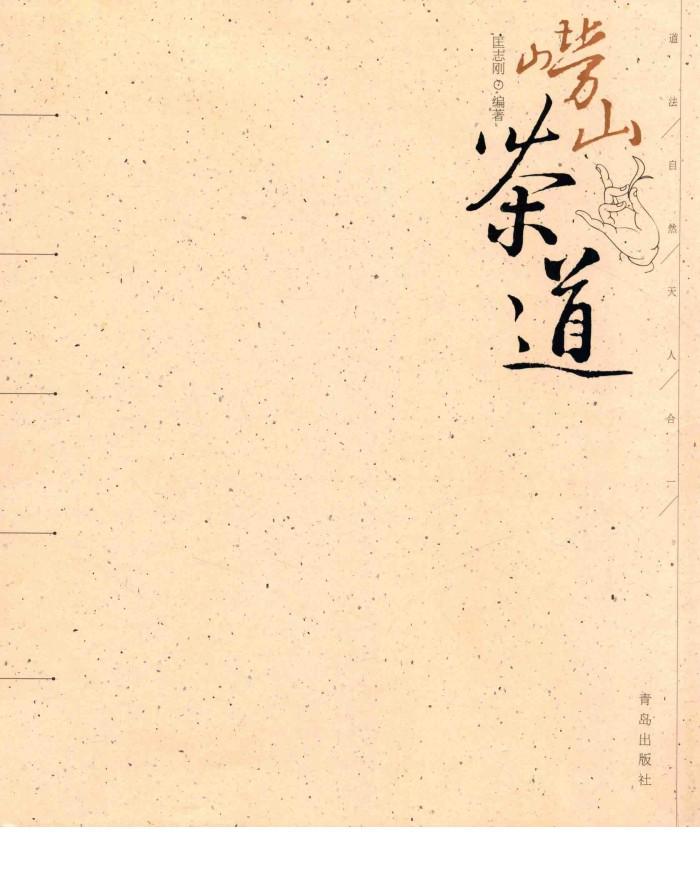 道法自然天人合一
崂山
茶道
匡志刚 编著
青岛出版社